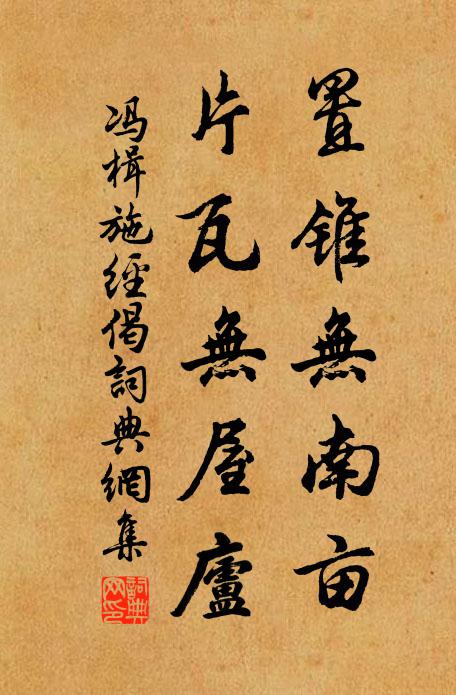 置錐無南亩
片瓦無屋廬
冯楫施經偈詞典網集
詞典网印